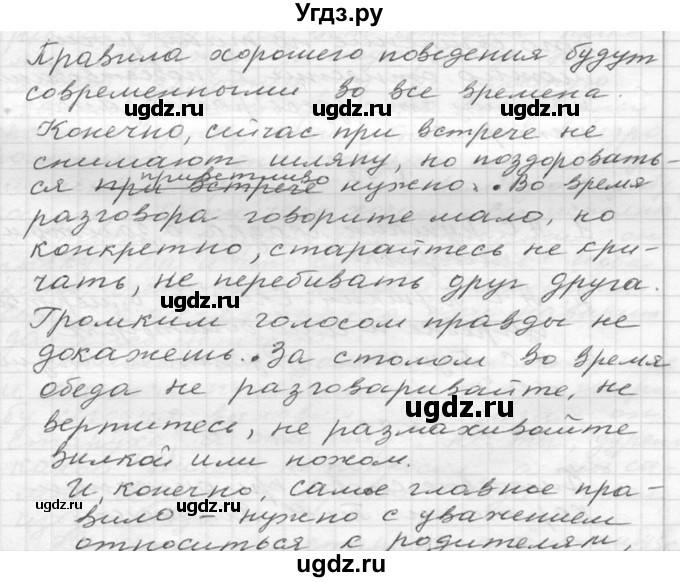 Угдз.ру
Правила хорошего поведения будут
современными во все времена.
ugdz.ru ugdz.ru
Конечно, сейчас при встрече не
снимают шляпу, но поздоровать-
приветливо
ся при встрече нужно. Во время
разговора говорите мало, но
конкретно, старайтесь не кри-
чать, не перебивать друг друга.
ugdz.ru
Громким голосом правды не
докажешь. За столом во время
обеда не разговаривайте, не
ugdz.ru
вертитесь, не размахивайте
вилкой или ножом.
И, конечно, самое главное пра-
ugdz.ru
вило - нужно с уважением
ugdz.ru
относиться к родителям,